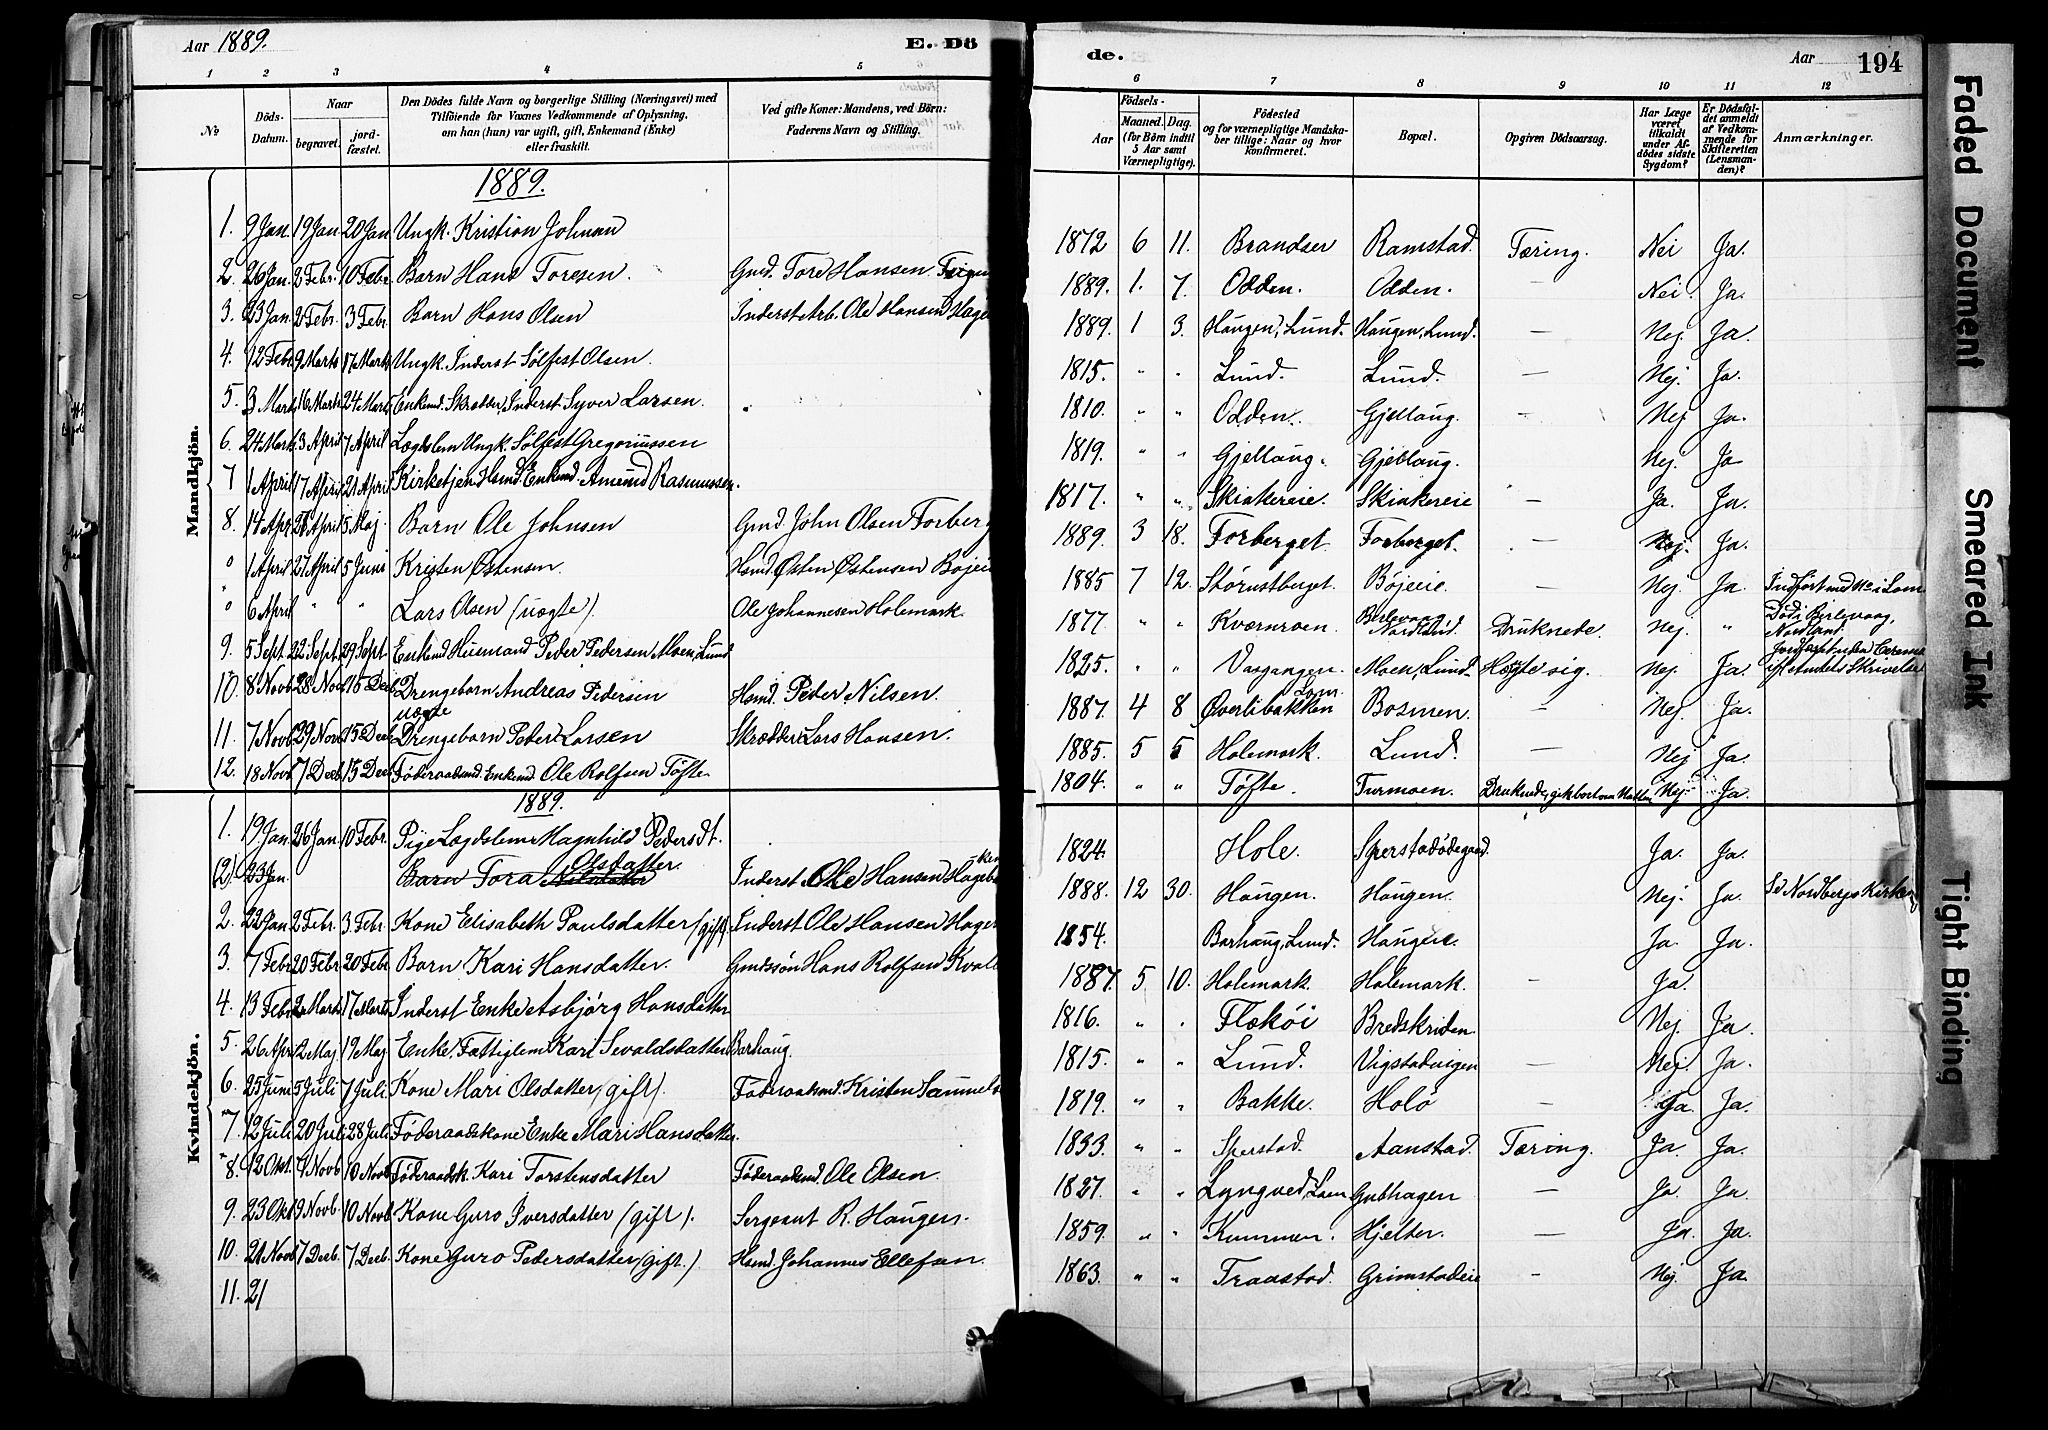 Aar 1889.
E. Dö
1 2 3 4 5
No
Döds-Datum.
Naar
begravet.
jord-fæstet.
Den Dödes fulde Navn og borgerlige Stilling (Næringsvei) med
Tilföiende for Voxnes Vedkommende af Oplysning,
om han (hun) var ugift, gift, Enkemand (Enke)
eller fraskilt.
Ved gifte Koner: Mandens, ved Börn:
Faderens Navn og Stilling.
Mandkjön.
1889.
1. 9 Jan. 19 Jan. 20 Jan Ungk. Kristian Johnsen
2. 26 Jan. 2 Febr. 10 Febr. Barn Hans Toresen. Gmd. Tore Hansen
3. 23 Jan. 2 Febr. 3 Febr. Barn Hans Olsen Inderst Arb. Ole Hansen Hage
4. 12 Feb. 9 Marts 17 Marts Ungk. Inderst Sølfest Olsen.
5. 3 Marts 16 Marts 24 Marts Enkemd. Skrædder, Inderst Syver Larsen.
6. 24 Marts. 3 April 7 April Lægdslem Ungk. Sølfest Gregoriussen
7 1 April 17 April 21 April Kirketjen Hsmd. Enkemd. Amund Rasmussen.
8. 14 Apr. 28 April 5 Maj. Barn Ole Johnsen Gmd. John Olsen Forberg
" 1 April 27 April 5 Juni Kristen Østensen. Hsmd. Østen Østensen Böjeie
" 6 April " " Lars Olsen (uægte). Ole Johannesen Holemark.
9. 5 Sept. 22 Sept. 29 Sept. Enkemd Husmand Peder Pedersen Moen, Lund
10. 8 Novb. 28 Nov. 15 Decb Drengebarn Andreas Pedersen Hsmd. Peder Nilsen.
uægte
11. 7 Novb. 29 Nov. 15 Decb Drengebarn Peder Larsen Skrædder Lars Hansen.
12. 18 Novb. 7 Decb. 15 Decb. Föderaadsmd. Enkemd Ole Rolfsen Töfte.
Kvindekjön.
1889.
1. 19 Jan. 26 Jan. 10 Febr. Pige Lægdslem Magnhild Pedersdt.
(2) 23 Jan. Barn Tora Nilsdatter Olsdatter. Inderst Ole Hansen Hagebakken
2. 22 Jan. 2 Febr. 3 Febr. Kone Elisabeth Paulsdatter (gift) Inderst Ole Hansen Hage
3. 7 Febr 20 Febr 20 Febr Barn Kari Hansdatter. Gmdssön Hans Rolfsen Kvale
4. 13 Febr. 2 Marts 17 Marts Inderst Enke Asbjörg Hansdatter
5. 26 Apr. 12 Maj. 19 Maj. Enke Fattiglem Kari Sevaldsdatter Barhaug.
6. 25 Juni 5 Juli 7 Juli. Kone Mari Olsdatter (gift). Föderaadsmd. Kristen Samuels
7. 12 Juli 20 Juli 28 Juli Föderaadskone Enke Mari Hansdatter.
8. 12 Okt. 7 Novb 10 Novb Föderaadsk. Kari Torstensdatter Föderaadsmd. Ole Olsen.
9. 23 Okt 9 Novb. 10 Novb. Kone Guro Iversdatter (gift). Sergeant R. Haugen.
10. 21 Novb 7 Decb. 7 Decb. Kone Guro Pedersdatter (gift.) Hsmd. Johannes Ellefsen.
11. 21
de.
Aar 194
6 7 8 9 10 11 12
Födsels-
Aar
Maaned. Dag.
(for Börn indtil
5 Aar samt
Værnepligtige).
Födested
og for værnepligtige Mandska-
ber tillige: Naar og hvor
konfirmeret.
Bopæl.
Opgiven Dödsaarsag.
Har Læge
været
tilkaldt
under Af-
dödes sidste
Sygdom?
Er Dödsfal-
det anmeldt
af Vedkom-
mende for
Skifteretten
(Lensman-
den)?
Anmærkninger.
1872 6 11. Brandser Ramstad. Tæring. Nei Ja.
1889. 1. 7. Odden. Odden. — Nei. Ja.
1889. 1 3. Haugen, Lund. Haugen, Lund. — Nej. Ja.
1815. " " Lund. Lund. — Nej. Ja.
1810. " " Odden. Gjellaug. - Nej Ja.
1819. " " Gjellaug. Gjellaug. Nej. Ja
1817. " " Skiakereie. Skiakereie — Ja. Ja.
1889. 3 18. Forberget. Forberget. — Nej. Ja.
1885 7 12. Störustberget. Böjeie. — Nej. Ja. Indfört med No i Lom
1877. " " Kvernroen. Berlevaag Nordland. Druknede. Nej. " Död i Berlevaag, Nordland.
1825. " " Vargangen. Moen, Lund. Hængte sig. Nej. Ja. Jordfæstet uden Ceremo
ifl. Amtets Skrivelse
1887. 4 8 Øverlibakken Lom. Bosmen. — Nej. Ja.
1885. 5 5 Holemark. Lund. — Nej Ja.
1804. " " Töfte. Turmoen. Druknede, gik bort om Natten Nej. Ja.
1824. Hole. Sperstadödegaard. Ja. Ja.
1888. 12 30. Haugen. Haugen. Nej. Ja. Nordbergs Kirke
1854. Barhaug, Lund. Haugeie. Ja. Ja.
1887 5 10. Holemark. Holemark. — Ja.
1816. " " Flækøi Bredskriden. Nej. Ja.
1815. " " Lund. Vigstadvigen — Nej. Ja.
1819. " " Bakke. Holö — Ja. Ja.
1833. " " Sperstad. Aanstad. Tæring. Ja. Ja.
1827. " " Lyngved, Lom Gubhagen — Ja. Ja.
1859. " " Kummen. Hjelter. — Ja. Ja.
1863. " " Traastad. Grimstadeie - Nej. Ja.
Faded Document
Smeared Ink
Tight Binding